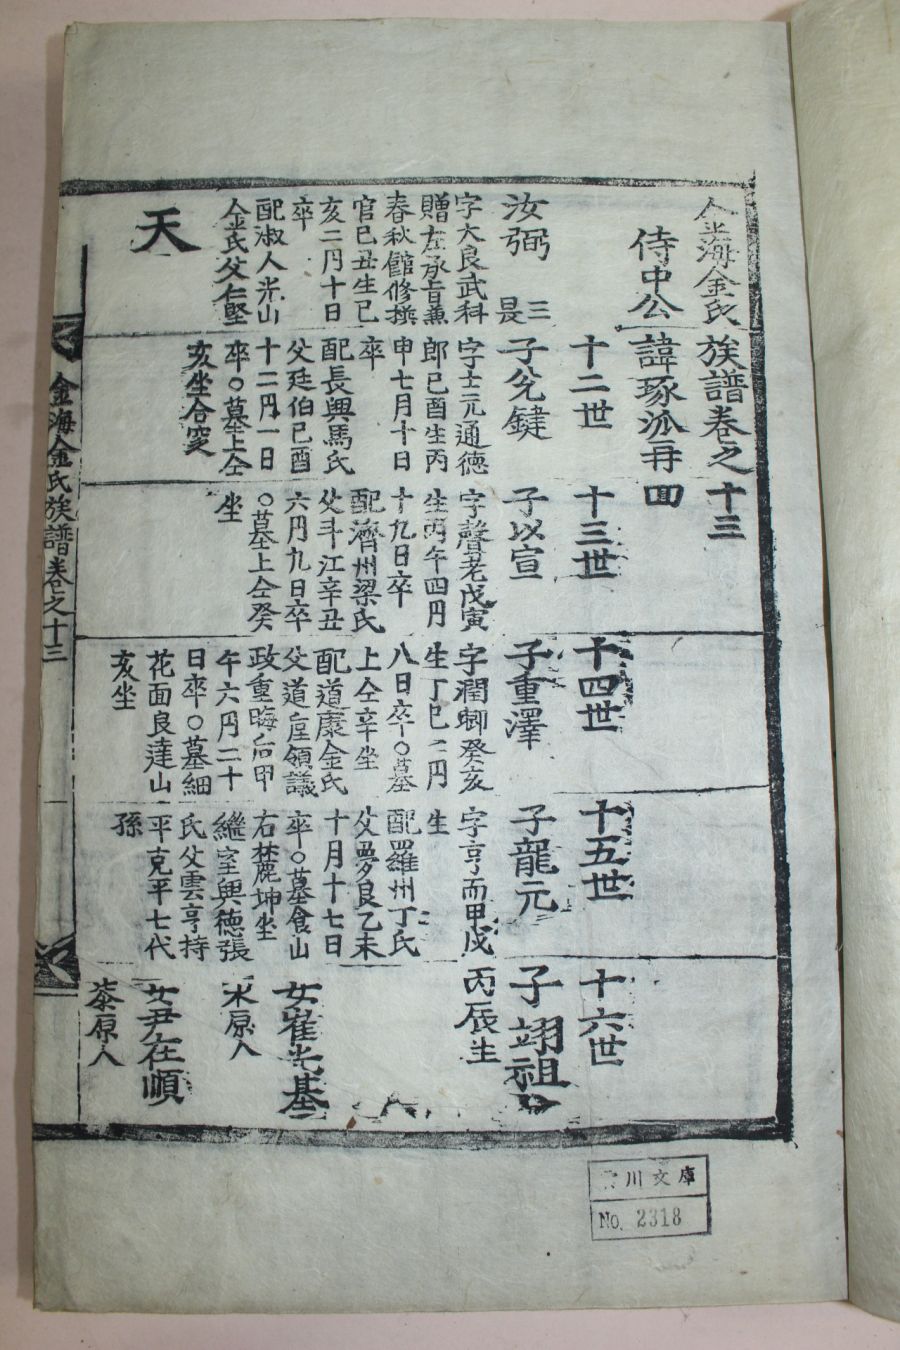 金海金氏族譜卷之十三
侍中公諱琢派再四
十二世
十三世
十四世
十五世
十六世
汝弼
三是
字大良武科
贈左承旨兼
春秋館修撰
官己丑生己
亥二月十日
卒
配淑人光山
金氏父仁堅
天
子兌鍵
字士元通德
郎己酉生丙
申七月十日
卒
配長興馬氏
父廷伯己酉
十二月一日
卒○墓上仝
亥坐合窆
子以宣
字聲老戊寅
生丙午四月
十九日卒
配濟州梁氏
父斗江辛丑
六月九日卒
○墓上仝癸
坐
子重澤
字潤卿癸亥
生丁巳二月
八日卒○墓
上仝辛坐
配道康金氏
父道 領議
政重晦后甲
午六月二十
日卒○墓細
花面良達山
亥坐
子龍元
字亨而甲戌
生
配羅州丁氏
父夢良乙未
十月十七日
卒○墓食山
右麓坤坐
繼室興德張
氏父雲亨持
平克平七代
孫
子翊祖
丙辰生
女崔光基
原人
女尹在順
原人
金海金氏族譜卷之十三
川文庫
No. 2318